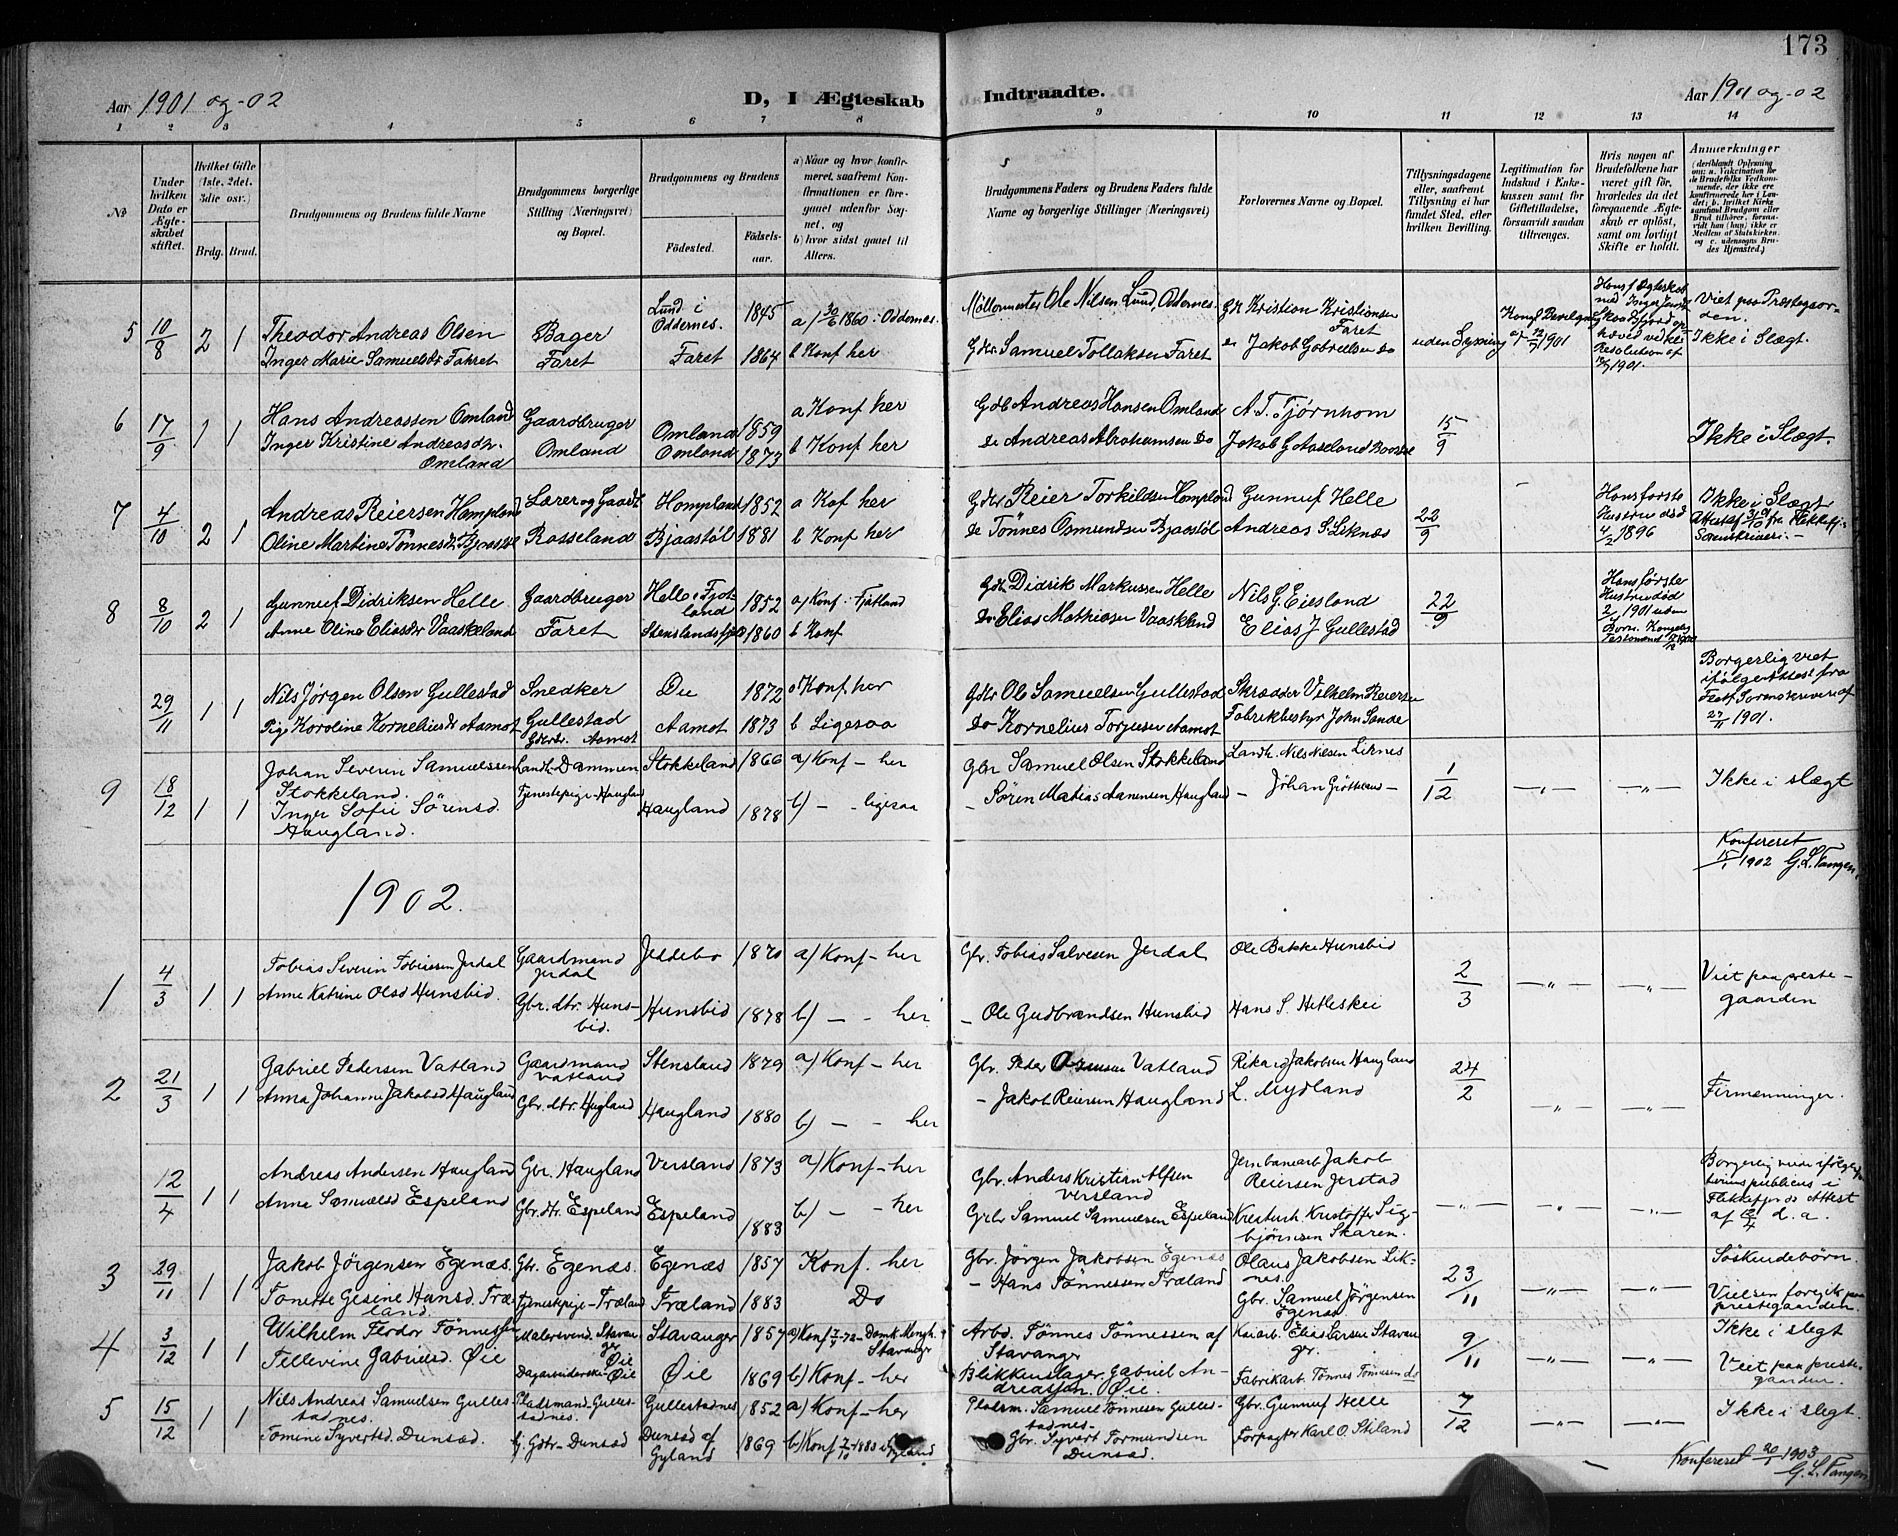 173
Aar 1901 og-02
D, I Ægteskab Indtraadte.
Aar 1901 og-02
1 2 3 4 5 6 7 8 9 10 11 12 13 14
No
Under hvilken Dato er Ægteskabet stiftet.
Hvilket Gifte (1ste, 2det, 3die osv.)
Brdg. Brud.
Brudgommens og Brudens fulde Navne
Brudgommens borgerlige Stilling (Næringsvei) og Bopæl.
Brudgommens og Brudens
Födested.
Födselsaar.
a) Naar og hvor konfirmeret, saafremt Konfirmationen er foregaaet udenfor Sognet, og
b) hvor sidst gaaet til Alters.
Brudgommens Faders og Brudens Faders fulde Navne og borgerlige Stillinger (Næringsvei)
Forlovernes Navne og Bopæl.
Tillysningsdagene eller, saafremt Tillysning ei har fundet Sted, efter hvilken Bevilling.
Legitimation for Indskud i Enkekassen samt for Giftetilladelse, forsaavidt saadan tiltrænges.
Hvis nogen af Brudefolkene har været gift för, hvorledes da det foregaaende Ægteskab er oplöst, samt om lovligt Skifte er holdt.
Anmærkninger
5 10/8 2 1
Theodor Andreas Olsen
Inger Marie Samuelsdr Fahret
Bager
Faret
Lund i Oddernes. 1845
Faret 1864
a/ 30/6 1860 i Oddernes.
b Konf her
Møllermester Ole Nilsen Lund, Oddernes.
Gdbr Samuel Tollaksen Faret
Gbr Kristian Kristiansen Faret
do Jakob Gabrielsen do
uden Lysning
Kongl Bevilgn af 12/7 1901
Resolution af 1901.
Viet paa Præstegaarden.
Ikke i Slægt.
6 17/9 1 1
Hans Andreassen Omland
Inger Kristine Andreasdr. Omland
Gaardbruger
Omland
Omland 1859
Omland 1873
a Konf her
b Konf her
Gdb Andreas Hansen Omland
Do Andreas Abrahamsen Do
A. T. Tjørnhom
Jakob G Aaseland
15/9
Ikke i Slægt.
7 4/10 2 1
Andreas Reiersen Hompland
Oline Martine Tønnesdr
Lærer og Gaardb
Rosseland
Hompland 1852
Bjaastøl 1881
a Kof her
b Konf her
Gdbr Reier Torkildsen Hompland
do Tönnes Osmundsen Bjaastöl
Gunnuf Helle
Andreas S. Liknæs
22/9
Hans förste Hustru død 4/2 1896
Ikke i Slægt
Attest 3/10 01 fra Flekkefj. Sorenskriveri. -
8 8/10 2 1
Gunnuf Didriksen Helle
Anne Oline Eliasdr Vaaskeland
Gaardbruger
Faret
Helle i Fjotland 1852
Stenslandsfj. 1860
a) Konf. i Fjotland
b Konf
Gdbr Didrik Markussen Helle
Do Elias Mathiasen Vaaskland
Nils G. Eiesland
Elias J Gullestad
22/9
Hans første Hustru död 1901 uden Børn. Kongelig Testament
29/11 1 1
Nils Jörgen Olsen Gullestad
Pige Karoline Korneliusdr Aamot
Snedker
Gullestad
Gdbrdr. Aamot
Du 1872
Aamot 1873
a Konf her
b Ligesaa
Gdbr Ole Samuelsen Gullestad
Do Kornelius Torjusen Aamot
Skrædder Vilhelm Reiersen
Fabrikbestyr John Sande
Borgerlig viet ifølge Attest fra Flekf. Sorenskriveri af 27/11 1901.
9 18/12 1 1
Johan Severin Samuelssen Stokkeland.
Inger Sofie Sörensd. Haugland.
Landh. Dammen
Tjenestepige-Haugland
Stokkeland 1866
Haugland 1878
a) Konf - her
b) - - ligesaa
Gbr Samuel Olsen Stokkeland
- Sören Matias Aanensen Haugland
Landh. Nils Nilsen Liknes
- Jöhan
1/12
-„- -„-
Ikke i slægt
Konfereret 15/1 1902 G. L. Tangen
1902.
1 4/3 1 1
Tobias Severin Tobiassen Jerdal
Anne Katrine Olsd Hunsbid.
Gaardmand Jerdal
Gbr. dtr. Hunsbid.
Jeddebo 1870
Hunsbid 1878
a) Konf - her
b) - - her
Gbr. Tobias Salvesen Jerdal
- Ole Gudbrandsen Hunsbid
Ole Bakke Hunsbid
Hans S. Hetleskei
2/3
-„- -„-
Viet paa prestegaarden
2 21/3 1 1
Gabriel Pedersen Vatland
Anna Johanne Jakobsd Haugland
Gaardmand Vatland
Gbr. dtr. Hugland
Stensland 1879
Haugland 1880
a) Konf - her
b) - - her
Gbr. Peder Vatland
- Jakob Reiersen Haugland
Rikard Jakobsen Haugland
L. Mydland
24/2
-„- -„-
Firmenninger.
12/4 1 1
Andreas Andersen Haugland
Anna Samuelsd Espeland
Gbr. Haugland
Gbr. dtr. Espeland
Versland 1873
Espeland 1883
a) Konf - her
b) - - her
Gbr. Anders Kristian Alfsen Versland
Gbr Samuel Samuelsen Espeland
Jernbanearb Jakob Reiersen Jerstad
Kristoffer Sigbjörnsen Skaren.
-„- -„- -„-
Borgerlig viede ifølge notarius publicus i Flekkefjords Attest af 12/4 d. a.
3 29/11 1 1
Jakob Jörgensen Egenæs.
Tonette Gesine Hansd. Træland.
Gbr. Egenæs.
Tjenestepige-Træland
Egenæs 1857
Træland 1883
Konf. her
Do
Gbr. Jörgen Jakobsen Egenæs
- Hans Tönnessen Træland
Olaus Jakobsen Liknes.
Gbr. Samuel Jörgensen Egenæs
23/11
-„- -„-
Söskendebörn.
Vielsen foregik paa prestegaarden.
4 3/12 1 1
Wilhelm Teodor Tönnessen
Tellevine Gabrielsd. Öie
Malersvend. Stavanger
Dagarbeiderske-Öie
Stavanger 1857
Öie 1869
a) Konf 72 - Domk. Menigh. Stavanger
b) Konf - her
Arbd. Tönnes Tönnessen af Stavanger
Blikkenslager Gabriel Andreassen. Öie.
Elias Larsen Stavanger.
Fabrikarb. Tönnes Tönnesen do
9/11
-„- -„-
Ikke i slegt
Viet paa prestegaarden.
5 15/12 1 1
Nils Andreas Samuelsen Gullestadnes.
Tomine Syvertsd. Dunsæd.
Pladsmand. Gullestadnes.
Gdtr. Dunsæd
Gullestadnes 1852
Dunsæd af Gyland 1869
a) Konf - her
b) Konf 1883 i Gyland
Pladsm. Samuel Tönnesen Gullestadnes-
Gbr. Syvert Tormundsen Dunsæd.
Gbr. Gunnuf Helle
Forpagter Karl O. Stiland
7/12
-„- -„-
Ikke i slegt.
Konfereret 20/1 1903
G. L. Tangen